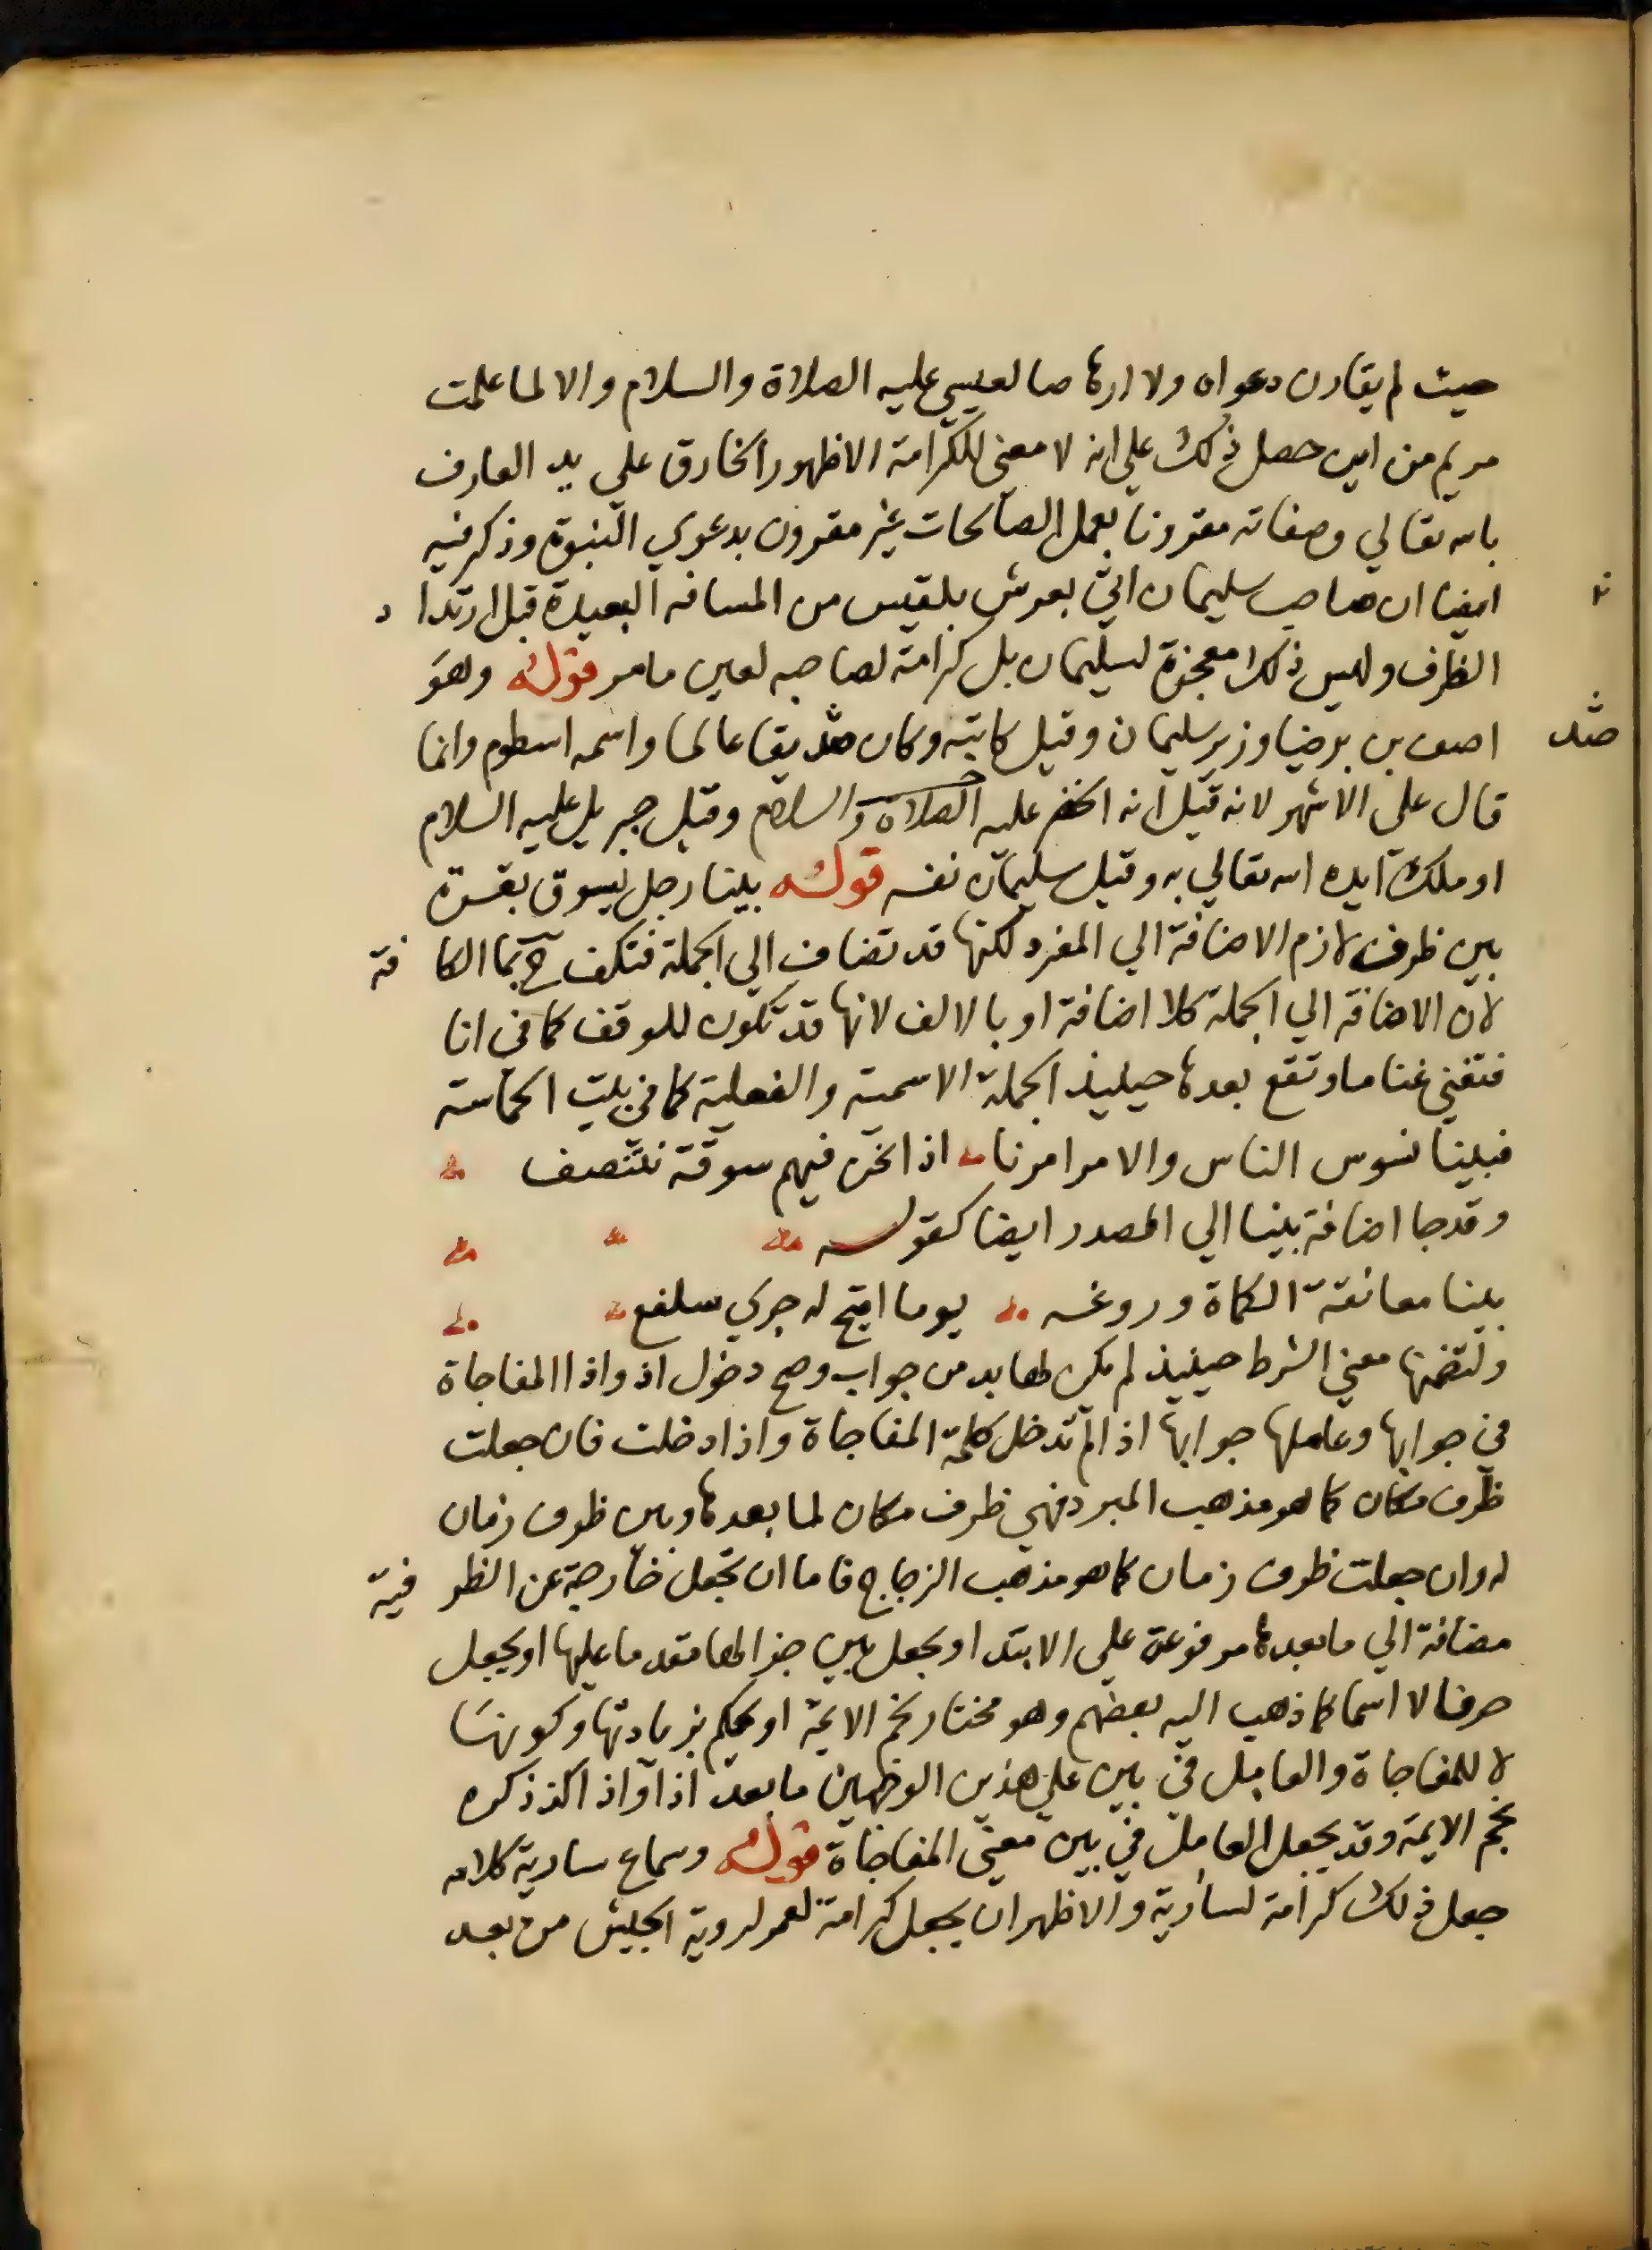 حيث لم يقارن دعواه ولا ارهاصا لعيسي عليه الصلاة والسلام والا لما علمت
مريم من اين حصل ذلك علي انه لا معني للكرامة الا ظهور الخارق علي يد العارف
بالله تعالي وصفاته مقرونا بعمل الصالحات غير مقرون بدعوي النبوة وذكر فيه
ايضا ان صاحب سليمان اتي بعرش بلقيس من المسافه البعيدة قبل ارتداد
الطرف وليس ذلك معجزة لسليمان بل كرامة لصاحبه لعين ما مر قوله وهو
اصف بن برخيا وزير سليمان وقيل كاتبه وكان صديقا عالما واسمه اسطوم وانما
صد
قال علي الاشهر لانه قيل انه الخضر عليه الصلاة والسلام وقيل جبريل عليه السلام
او ملك ايده الله تعالي به وقيل سليمان نفسه قوله بينا رجل يسوق بقرة
بين ظرف لازم الاضافة الي المفرد لكنها قد تضاف الي الجملة فتكف ح بما الكافة
لان الاضافة الي الجملة كلا اضافة او بالالف لانها قد تكون للوقف كما في انا
فتغني غنا ما وتقع بعدها حينيذ الجملة الاسمية والفعلية كما في بيت الحماسة
فبينا نسوس الناس والامر امرنا اذا نحن فيهم سوقة نتنصف
وقد جا اضافة بينا الي المصدر ايضا كقوله
بينا معانقة الكماة وروغه يوما اتيح له جري سلفع
ولتضمنها معني الشرط حينيذ لم يكن لها بد من جواب وصح دخول اذ واذا المفاجاة
في جوابها وعاملها جوابها اذا لم تدخل كلمة المفاجاة واذا دخلت فان جعلت
ظرف مكان كما هو مذهب المبرد فهي ظرف مكان لما بعدها وبين ظرف زمان
له وان جعلت ظرف زمان كما هو مذهب الزجاج فاما ان تجعل خارجة عن الظرفية
مضافة الي ما بعدها مرفوعة علي الابتدا ويجعل بين خبرا لها مقدما عليها او يجعل
حرفا لا اسما كما ذهب اليه بعضهم وهو مختار نجم الايمة او يحكم بزيادتها وكونها
لا للمفاجاة والعامل في بين علي هذين الوجهين ما بعد اذا واذ اكذ ذكره
نجم الايمة وقد يجعل العامل في بين معني المفاجاة قوله وسماع سارية كلامه
جعل ذلك كرامة لسارية والاظهر ان يجعل كرامة لعمر لروية الجيش من بعد